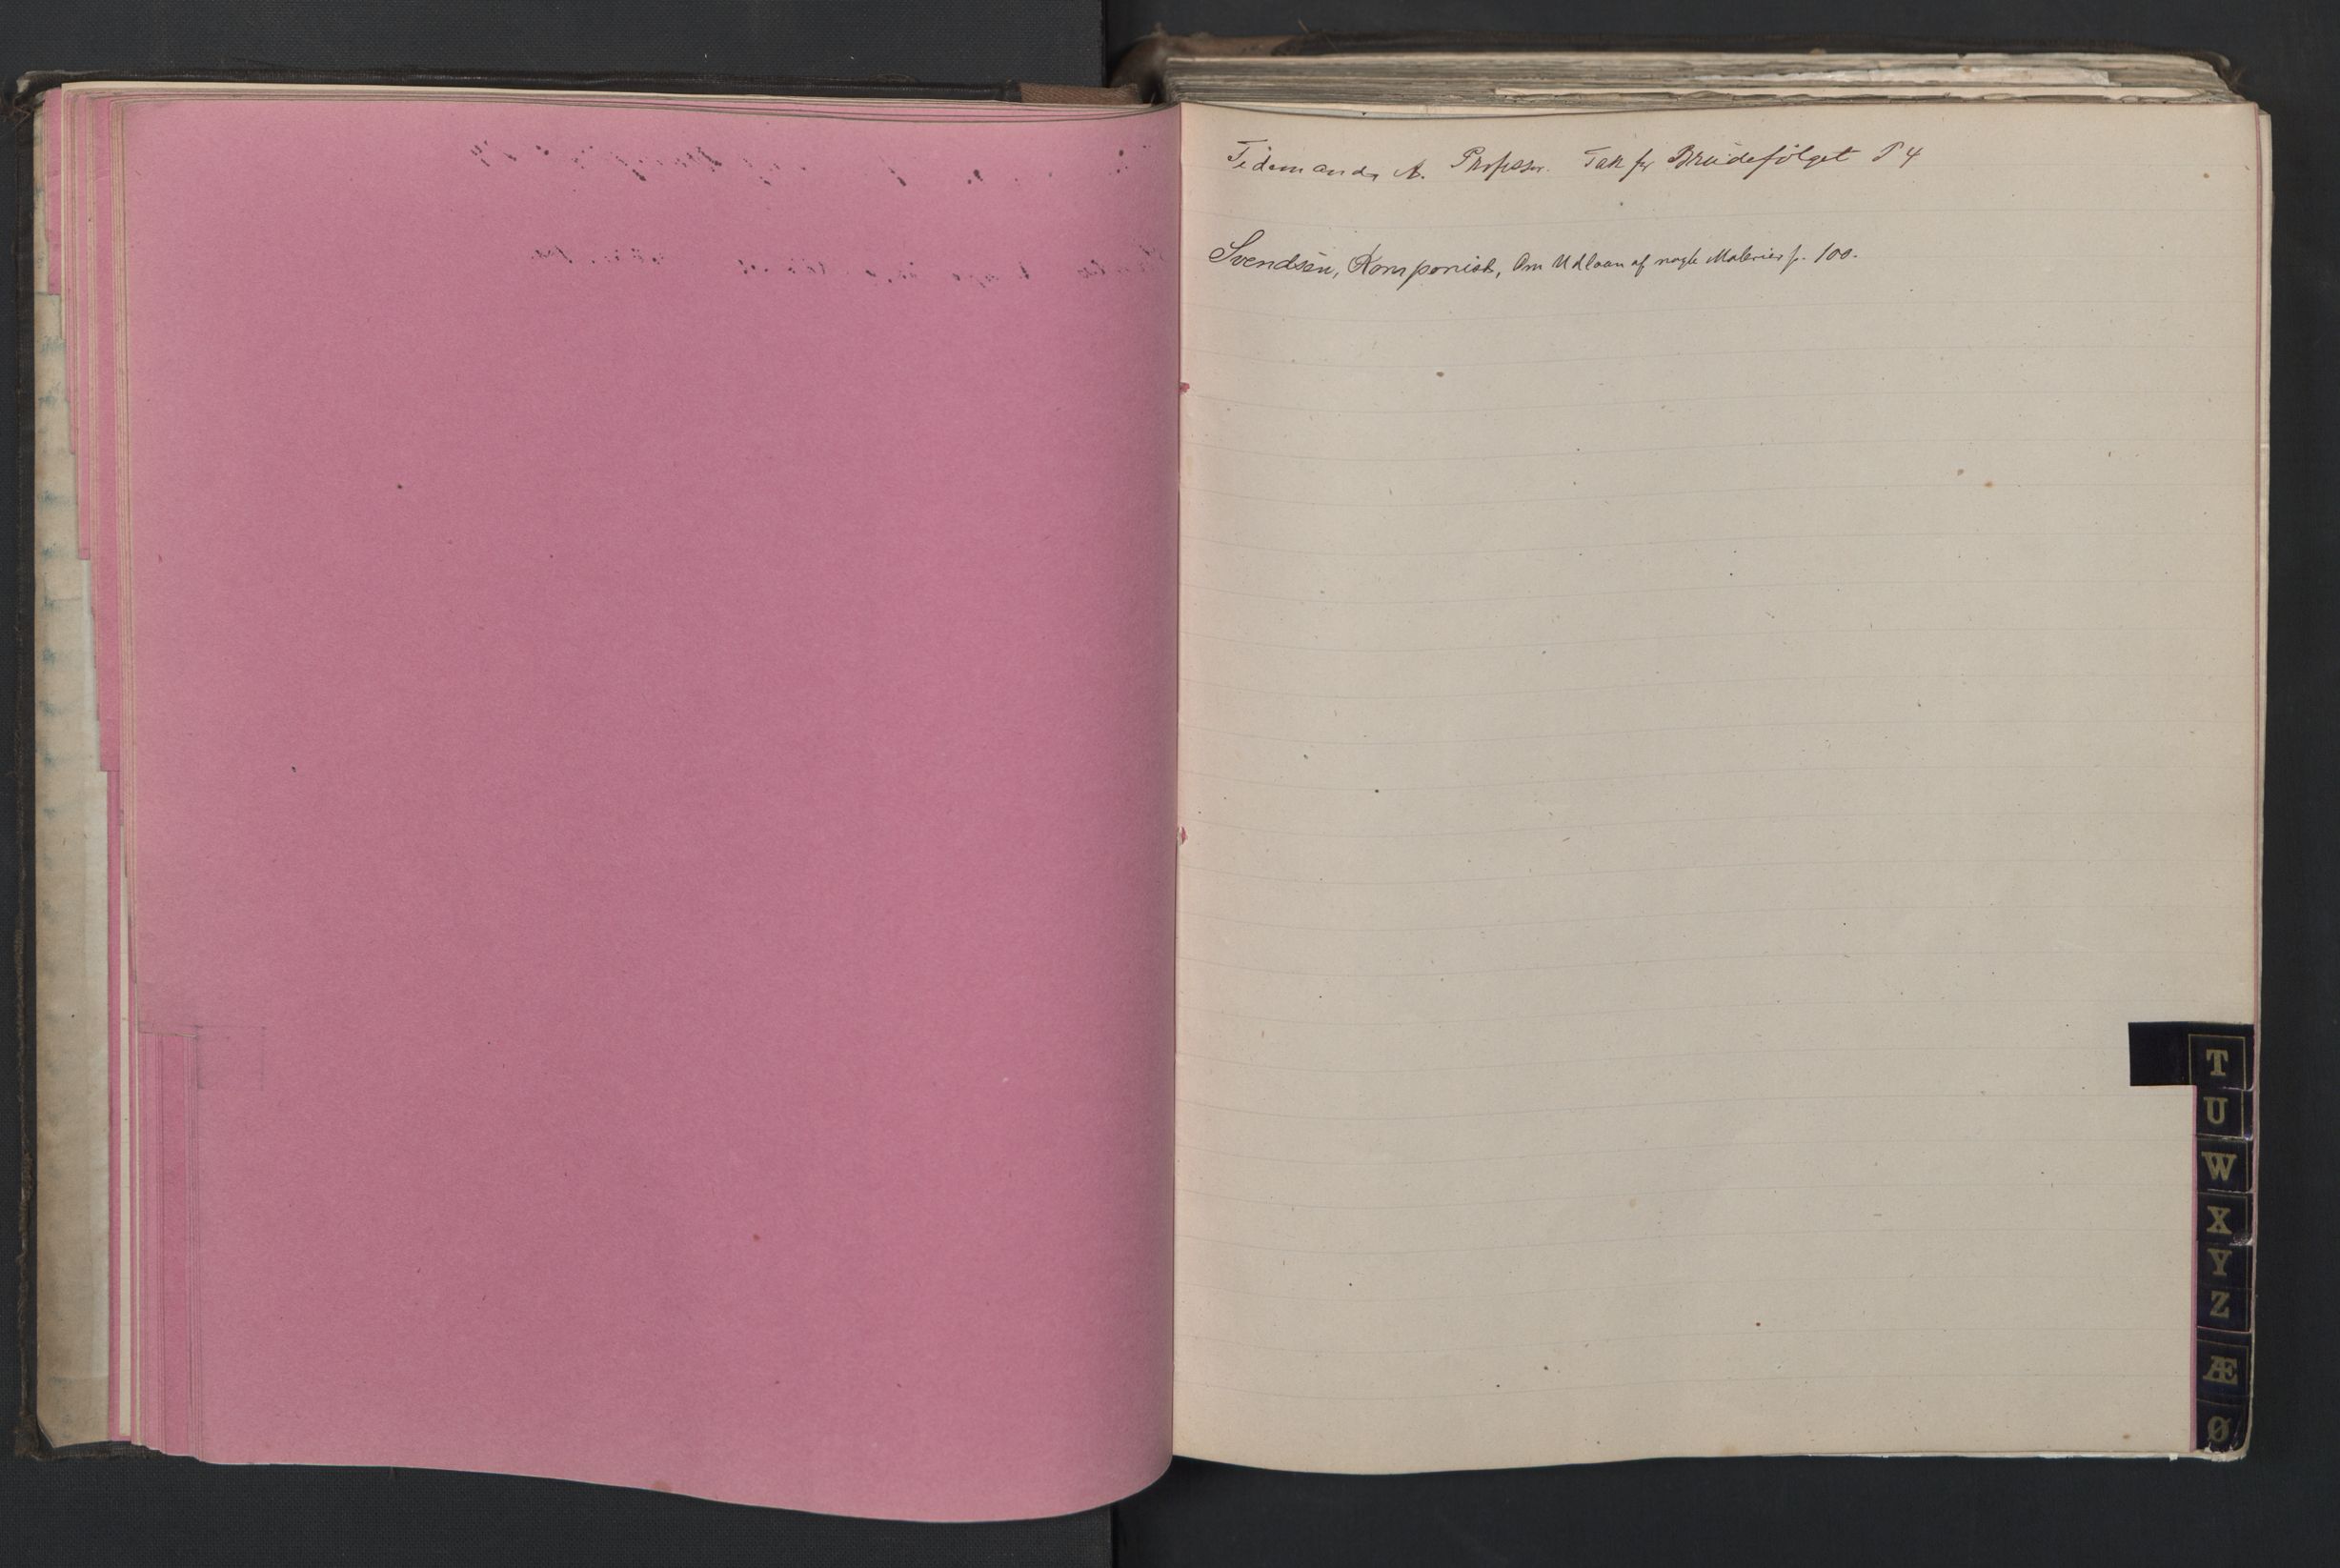 Tidemand, A. Professor. Tak for Brudefölget P 4
Svendsen, Komponist, Om Udlaan af nogle Malerier p. 100.
T
U
W
X
Y
Z
Æ
Ø